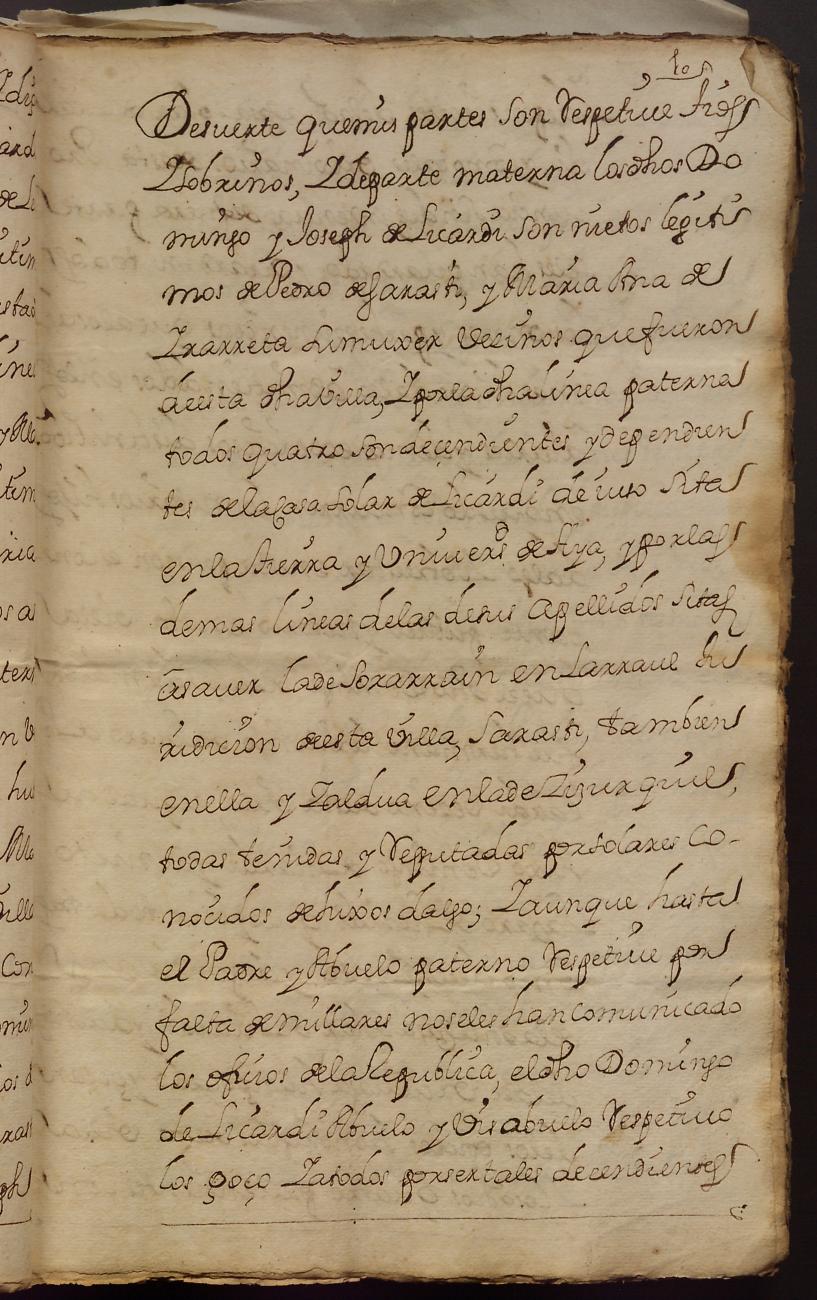 10
Desuerte quemis partes son Respetiue tios
Zsobrinos, Zdeparte materna losdhos Do
mingo y Joseph de Licardi son nietos legiti
mos de Pedro de Garasti, y Maria Ana de
Izarreta su muxer Vecinos que fueron
deesta dha Villa, Zporla dha linea paterna
todos quatro son decendientes y dependien
tes dela Casa solar de Licardi de iuso sita
enla tierra y Vniuersd de Aya, y por las
demas lineas delas desus apellidos sitas
asauer lade Sorarrain en Larraul hu
ridicion deesta Villa, Garasti, tambien
enella y Zaldua enlade Zizurquil,
todas tenidas y Reputadas porsolares Co-
nocidos dehixos dalgo; Zaunque hasta
el Padre y Abuelo paterno Respetiue por
falta demillares noseles han Comunicado
los oficios dela Republica, eldho Domingo
de Licardi Abuelo y Visabuelo Respetiuo
los goço Zatodos porsertales decendientes